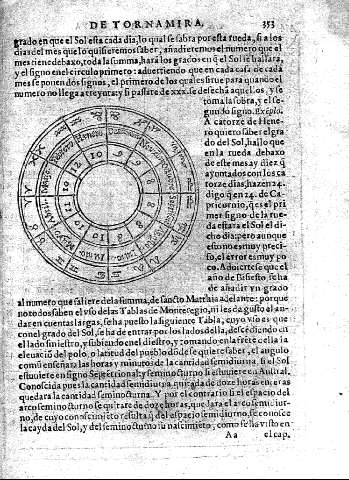 DE TORNAMIRA. 353
grado en que el Sol esta cada dia, lo qual se sabra por esta rueda, si a los
dias del mes que lo quisieremos saber, añadieremos el numero que el
mes tiene debaxo, toda la summa, hara los grados en q̃ el Sol se hallara,
y el signo en el circulo primero: advertiendo que en cada casa de cada
mes se ponen dos signos, el primero de los quales sirue para quando el
numero no llega a treynta: y si passare de xxx. se desecha aquellos, y se
toma la sobra, y el se-
gundo signo. Exẽplo.
A catorze de Hene-
ro quiero saber el gra
do del Sol, hallo que
en la rueda debaxo
de este mes ay diez q̃
ayuntados con los ca
torze dias, hazen 24.
digo q̃ en 24. de Ca-
pricornio, q̃ es el pri
mer signo de la rue-
da estara el Sol el di-
cho dia; pero aunque
esto no es muy preci-
so, el error es muy po
co. Aduierte se que el
año de Bisesto, se ha
de añadir vn grado
al numero que saliere de la summa, de sancto Matthia adelante: porque
no todos saben el vso de las Tablas de Monteregio, ni les da gusto al an-
dar en cuentas largas, se ha puesto la siguiente Tabla, cuyo vso es que
con el grado del Sol, se ha de entrar por los lados della, descendiẽdo en
el lado siniestro, y subiendo en el diestro, y tomando en la frẽte della la
eleuació del polo, o latitud del pueblo dõde se quiere saber, el angulo
comũ enseñara las horas y minutos de la cantidad semidiurna, si el Sol
estuuiere en signo Septentrional; y seminocturno si estuuiere en Austral.
Conoscida pues la cantidad semidiurna, quitada de doze horas enteras
quedara la cantidad seminocturna. Y por el contrario si el espacio del
arco seminocturno se quitare de doze horas, quedara el arco semidiur-
no, de cuyo conoscimiento resulta q̃ del espacio semidiurno, se conosce
la cayda del Sol, y del seminocturno su nascimiẽto, como se ha visto en
Aa el cap.